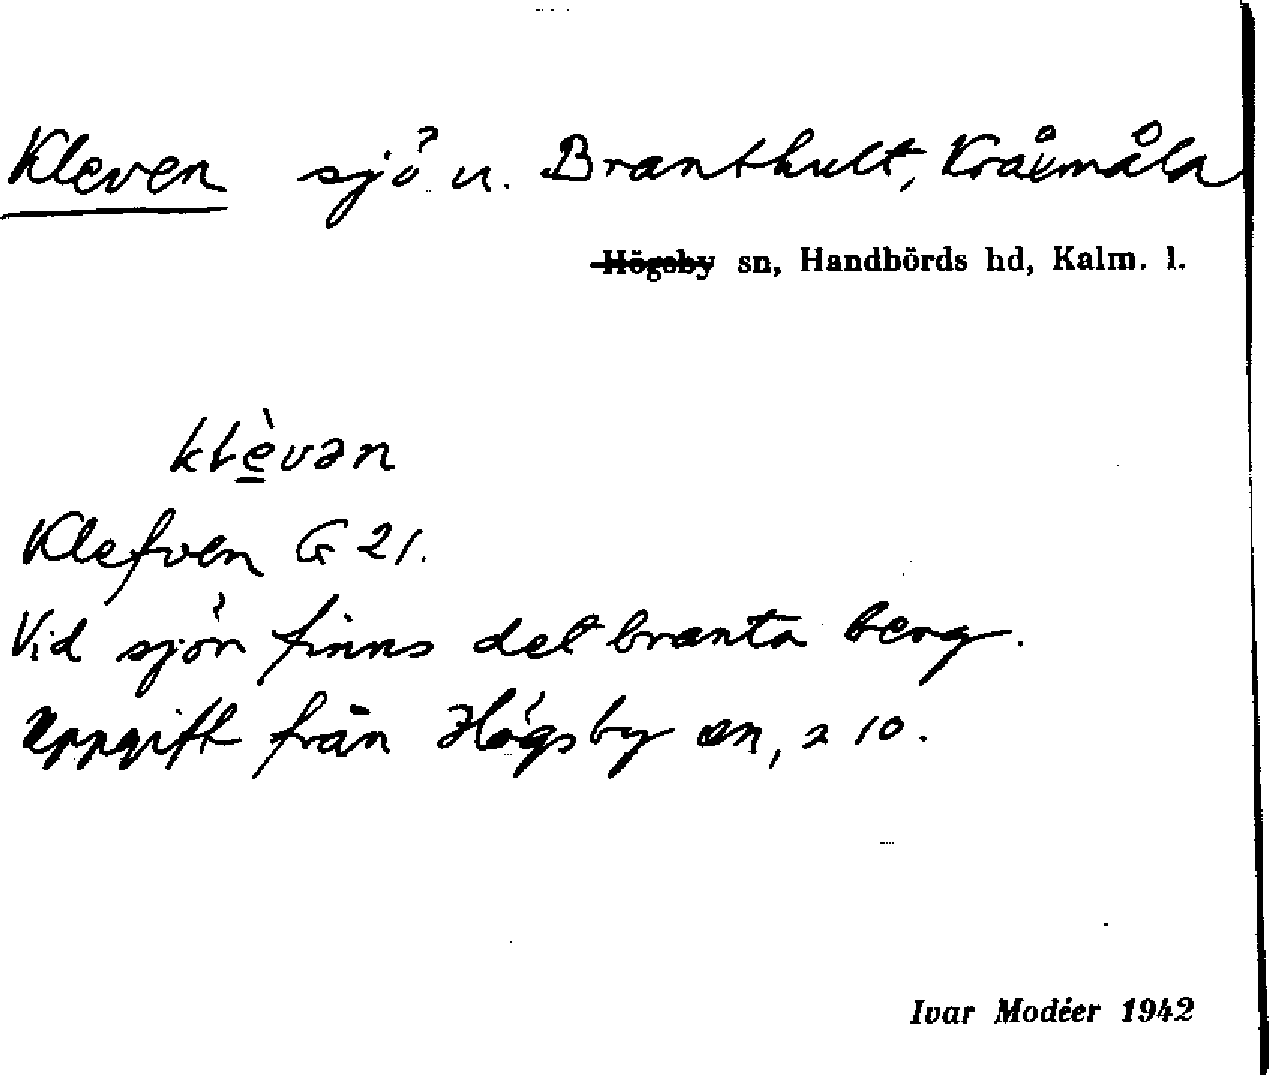 Kleven sjö u. Branthult, Kråxmåla
Högsby sn, Handbörds hd, Kalm. l.
klèvən
Klefven G 21.
Vid sjön finns det branta berg.
Uppgift från Högsby sn, s 10.
Ivar Modéer 1942